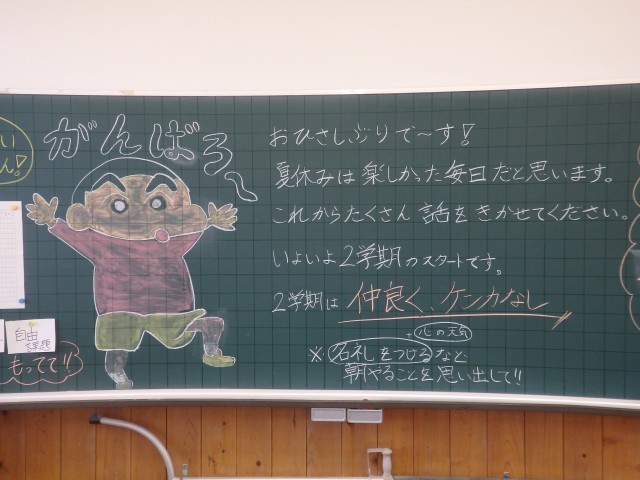 い
ん!
がんばろ〜
おひさしぶりで〜す!
夏休みは楽しかった毎日だと思います。
これからたくさん話をきかせてください。
いよいよ2学期のスタートです。
2学期は 仲良く、ケンカなし
+心の天気
※名札をつけるなど
朝やることを思い出して!!
自由
課題
もってて!!